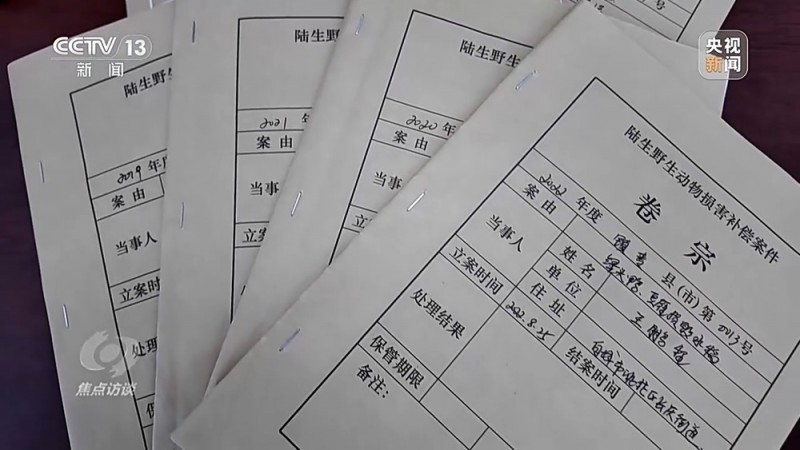 CCTV 13
新闻
央视
新闻
号
陆生野生
2019 年度
案由
当事人
立案时间
处理
保
陆生野生
2021 年
案由
当事
立案
处
陆生野生
2020 年
案由
当事
立案
处
陆生野生动物损害补偿案件
卷宗
2022 年度 县(市)第 0013 号
案由
当事人
姓名
单位
住址
立案时间 2022.8.25
结案时间
处理结果
保管期限
备注:
焦点访谈